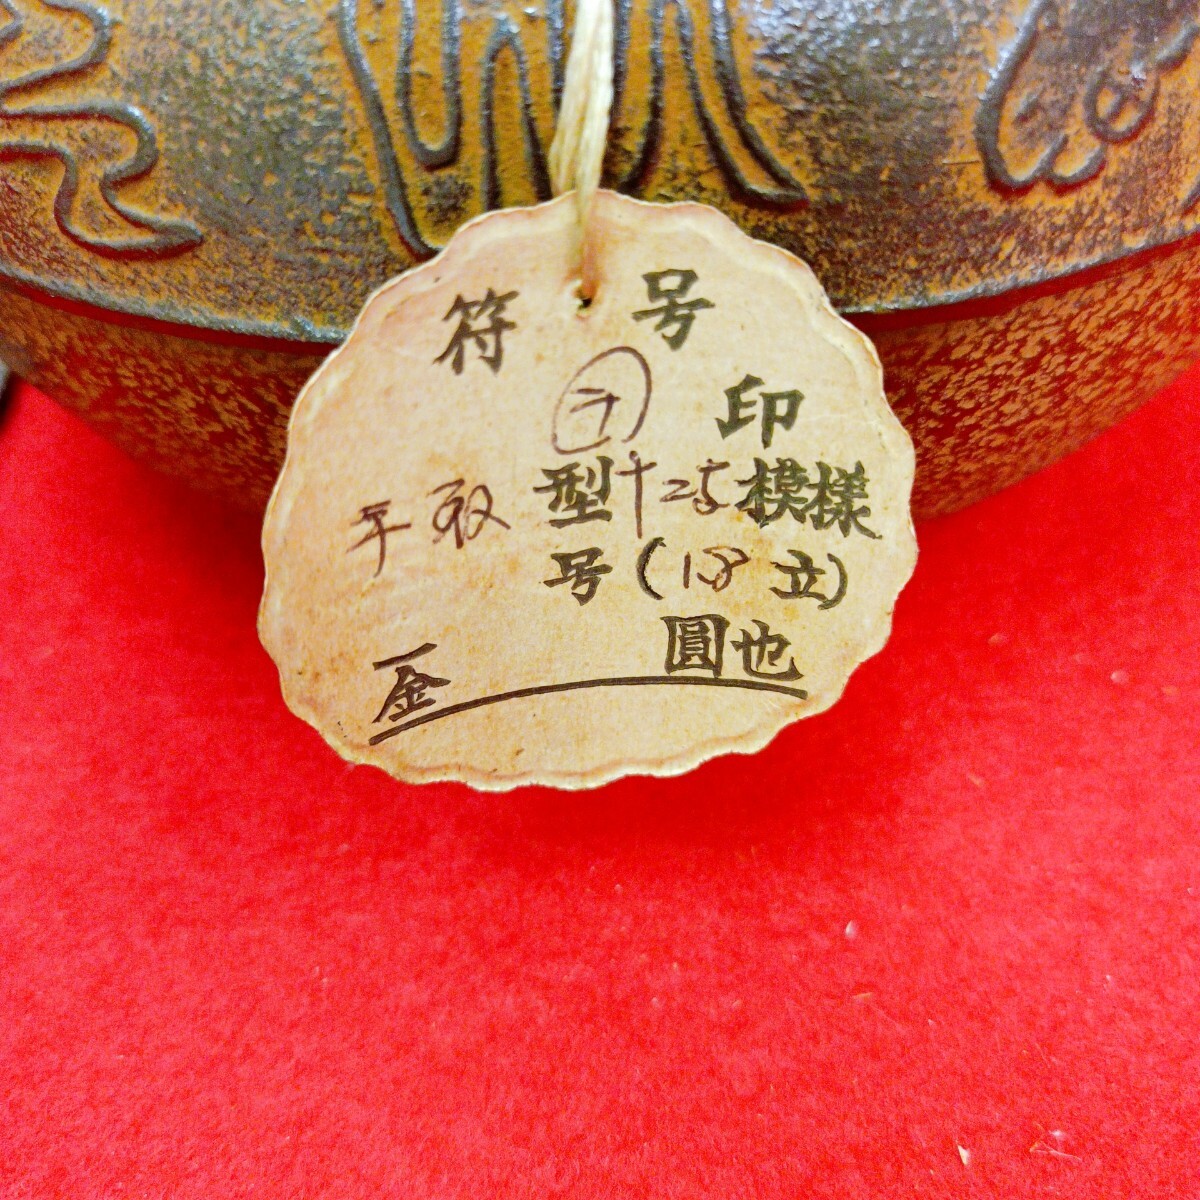 符号
㋠印
平取型千25模様
号(18立)
一金 圓也